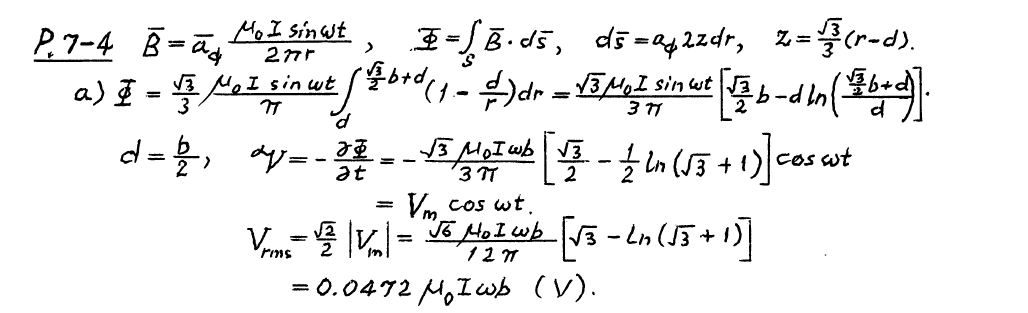 P.7-4 B̄ = ā_ϕ μ₀I sin ωt / 2πr , Φ = ∫_S B̄·ds̄, ds̄ = a_ϕ 2z dr, z = √3/3 (r-d).
a) Φ = √3/3 μ₀I sin ωt / π ∫_d^{√3/2 b+d} (1 - d/r) dr = √3 μ₀I sin ωt / 3π [√3/2 b - d ln((√3/2 b+d)/d)].
d = b/2, 𝒱 = - ∂Φ/∂t = - √3 μ₀Iωb / 3π [√3/2 - 1/2 ln(√3 + 1)] cos ωt
= V_m cos ωt.
V_rms = √2/2 |V_m| = √6 μ₀Iωb / 12π [√3 - ln(√3 + 1)]
= 0.0472 μ₀Iωb (V).